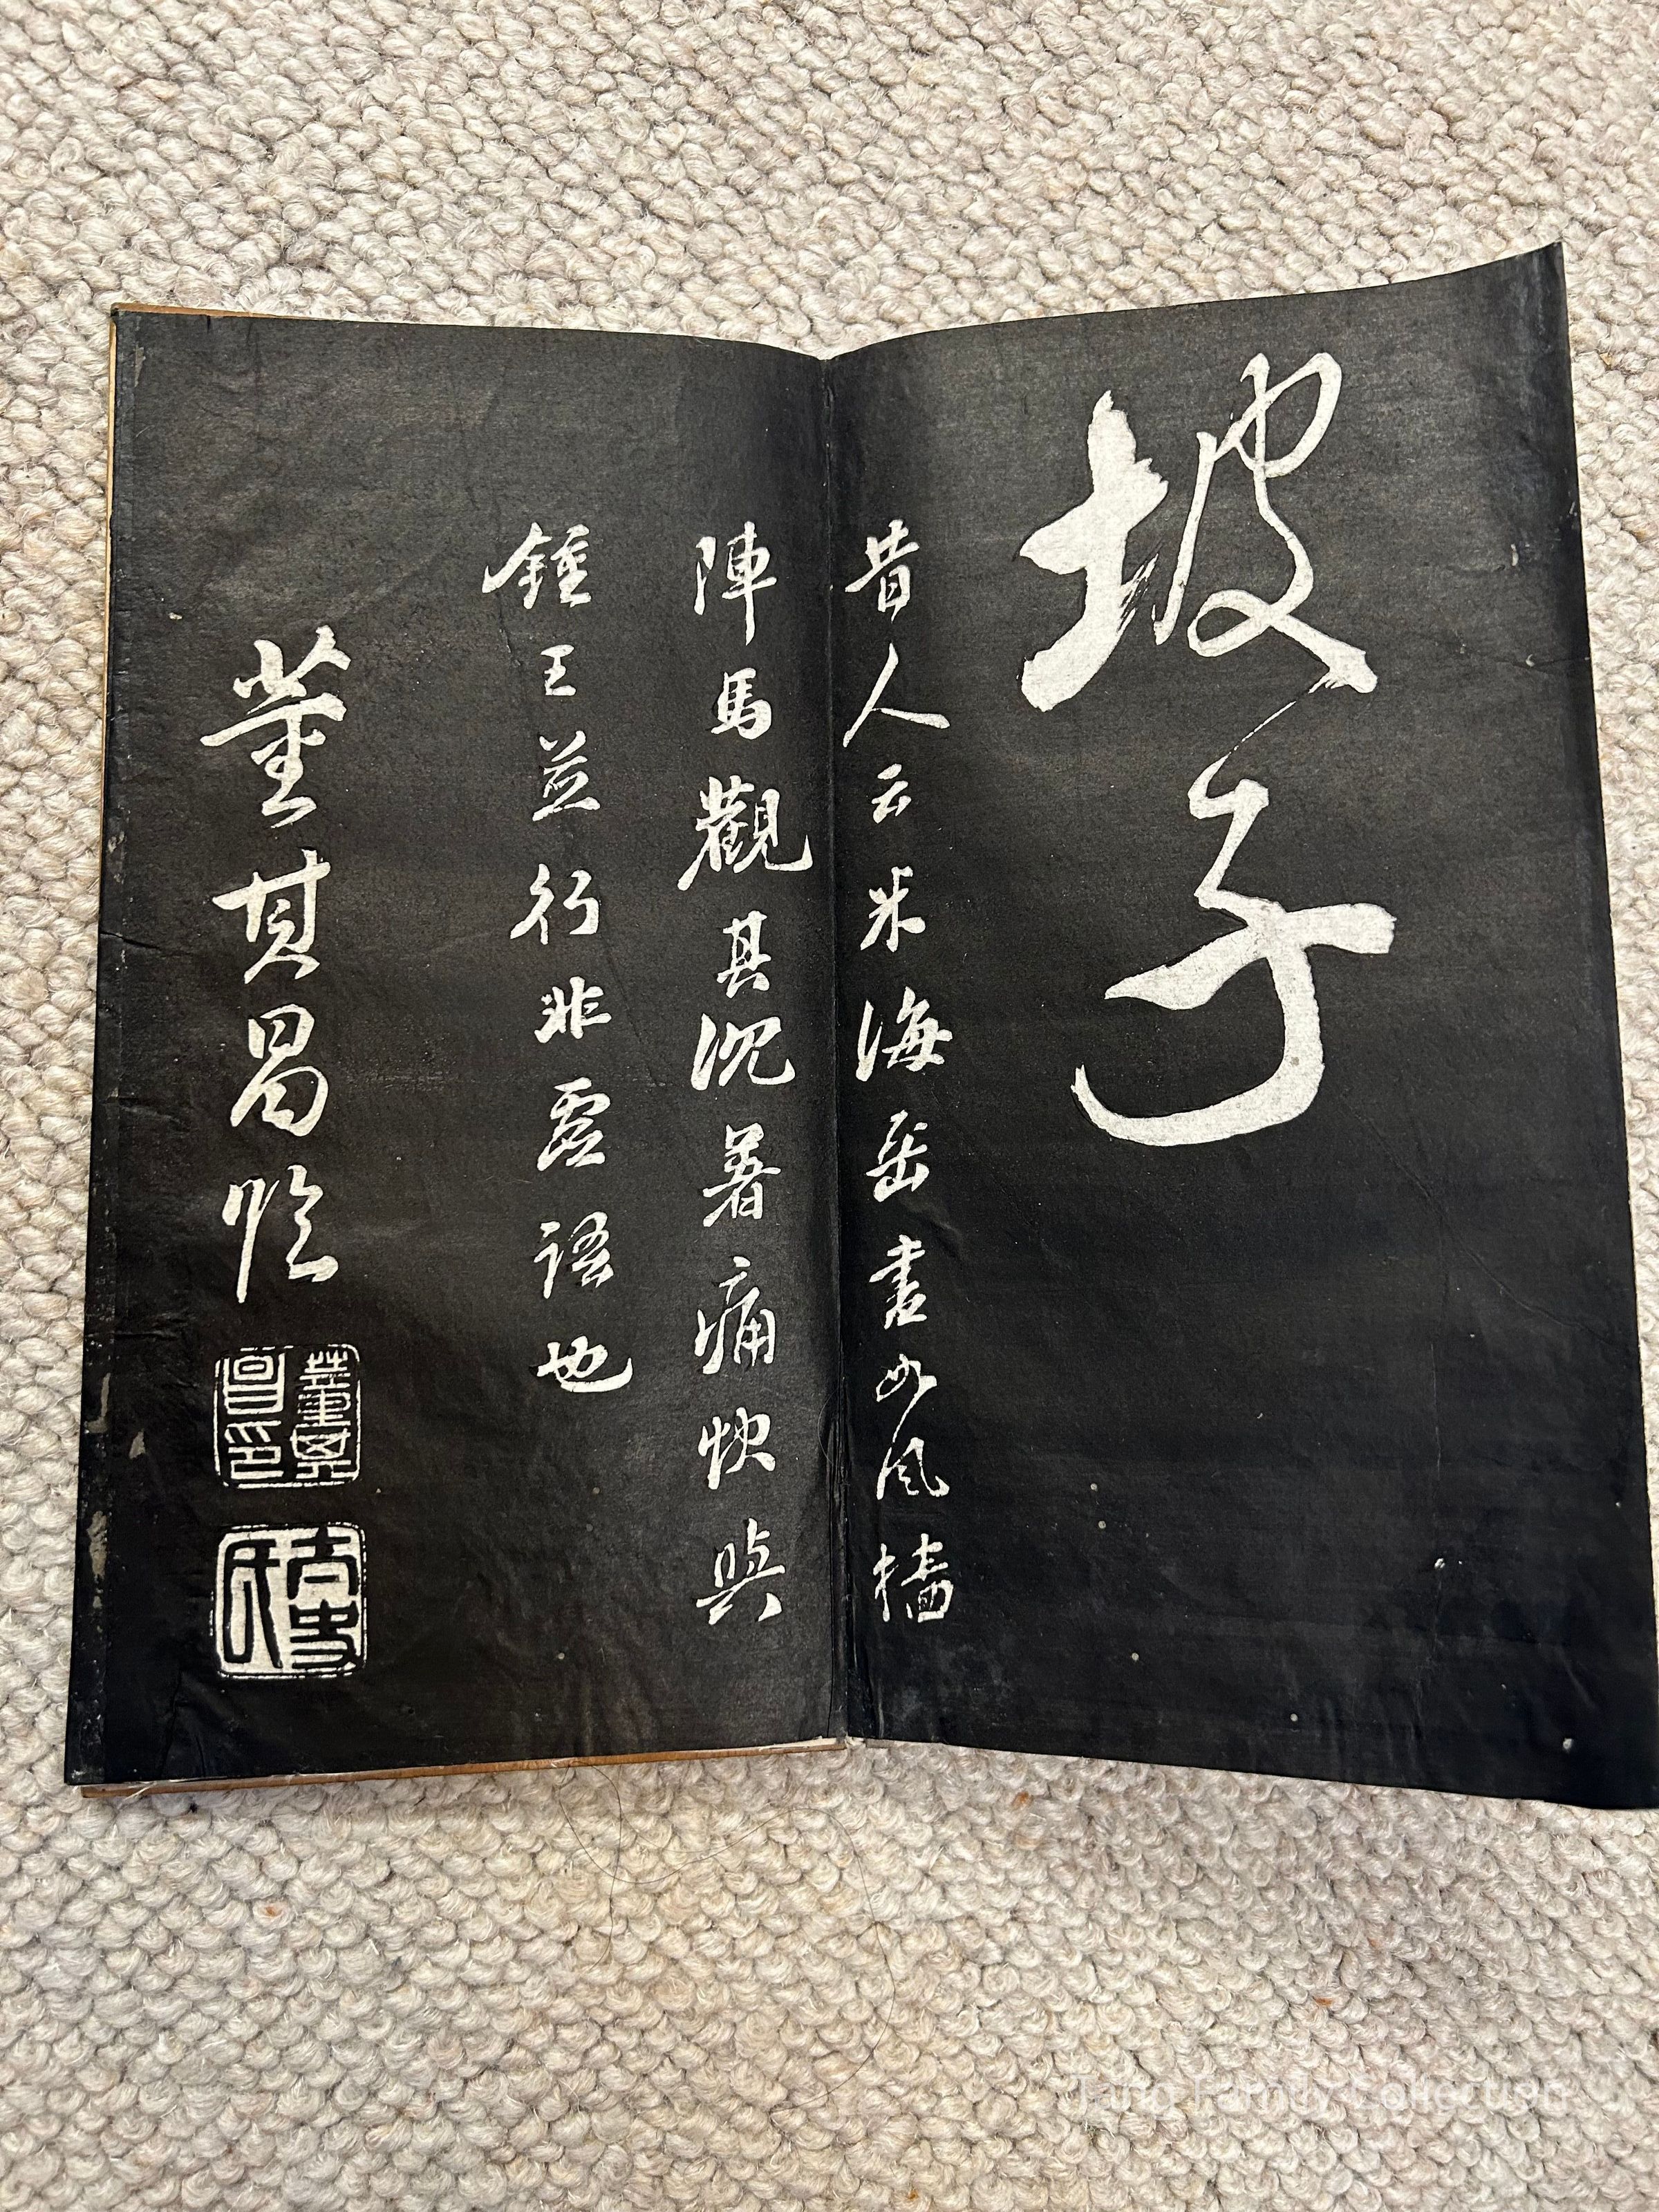 坡子
昔人云米海岳書如風檣
陣馬觀其沉著痛快與
鍾王並行非虛語也
董其昌臨
董其昌印
太史氏
Tang Family Collection